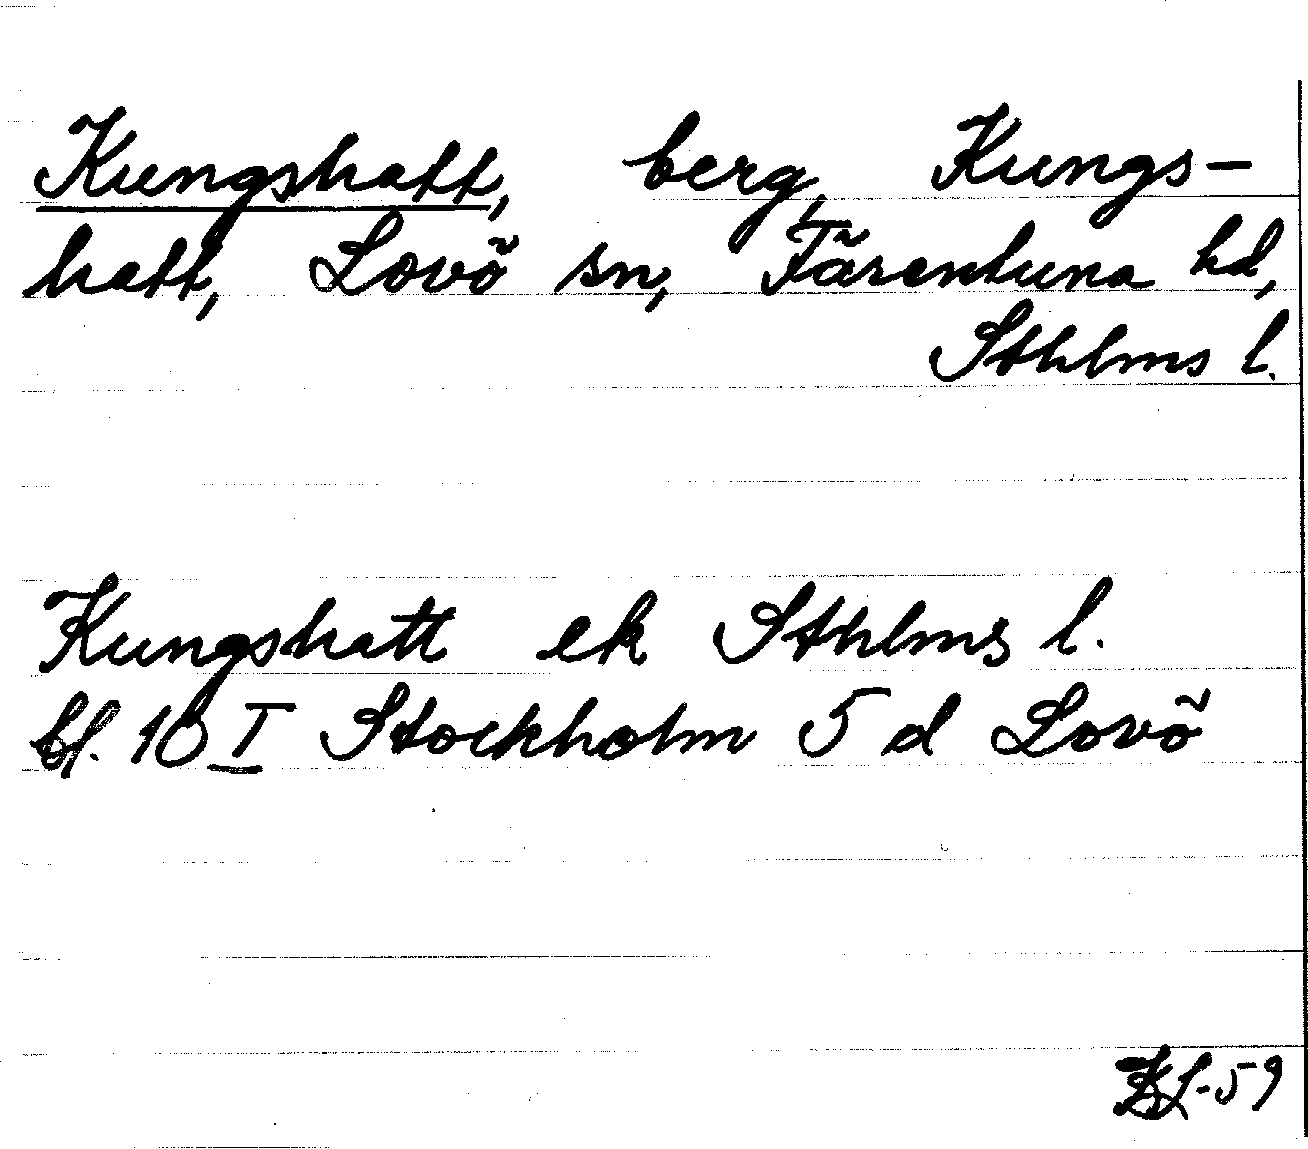 Kungshatt, berg, Kungs-
hatt, Lovö sn, Färentuna hd,
Sthlms l.
Kungshatt ek Sthlms l.
bl. 10 I Stockholm 5 d Lovö
-59